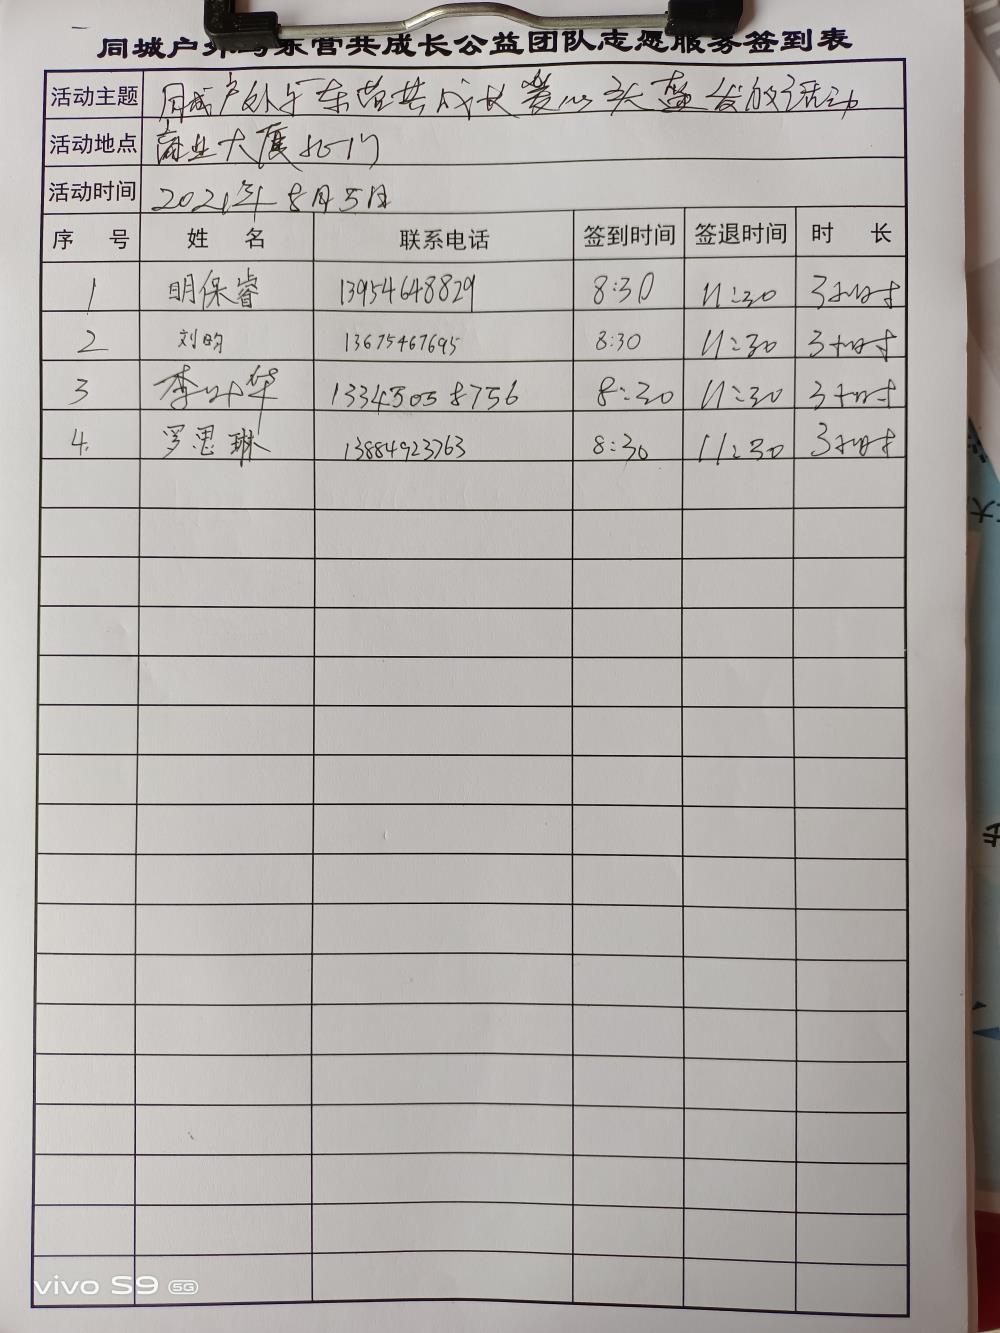 同城户外与东营共成长公益团队志愿服务签到表
活动主题 同城户外与东营共成长爱心头盔发放活动
活动地点 商业大厦北门
活动时间 2021年8月5日
序 号 姓 名 联系电话 签到时间 签退时间 时 长
1 明保睿 13954648829 8:30 11:30 3小时
2 刘昀 13675467695 8:30 11:30 3小时
3 李叶华 13345058756 8:30 11:30 3小时
4. 罗思琳 13884923763 8:30 11:30 3小时
vivo S9 5G